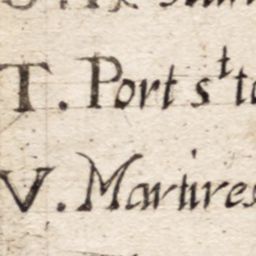 T. Port st
V. Martires